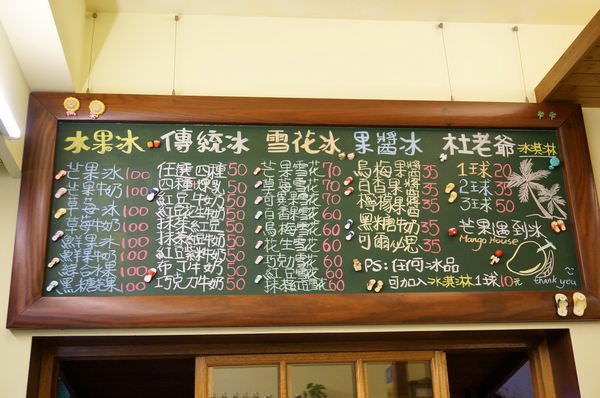 水果冰
芒果冰 100
芒果牛奶 100
草莓冰 100
草莓牛奶 100
鮮果冰 100
鮮果牛奶 100
綜合冰 100
黑糖芒果 100
傳統冰
任選四種 50
四種煉乳 50
紅豆牛奶 50
紅豆花生牛奶 50
抹茶紅豆 50
抹茶 牛奶 50
紅豆 牛奶 50
布丁牛奶 50
巧克力牛奶 50
雪花冰
芒果雪花 70
草莓雪花 70
百香果雪花 60
花生雪花 60
巧克力雪花 60
紅豆雪花 60
抹茶雪花 60
果醬冰
烏梅果醬 35
百香果醬 35
檸檬果醬 35
黑糖牛奶 35
可爾必思 35
PS:任何冰品
可加入冰淇淋1球10元
杜老爺冰淇淋
1球 20
2球 35
3球 50
芒果遇到冰
Mango House
thank you